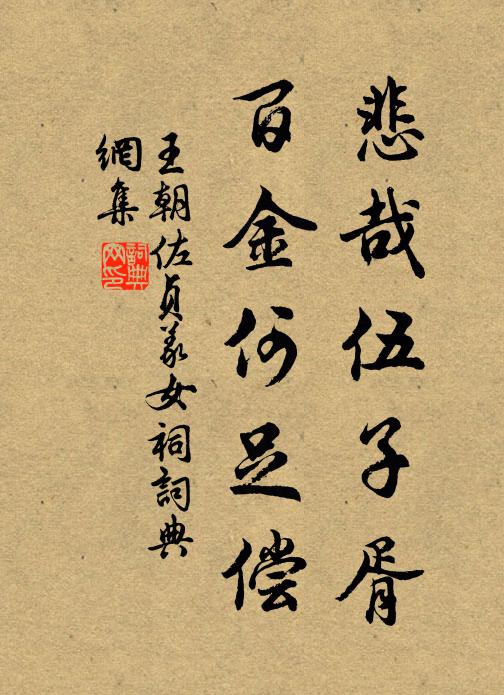 悲哉伍子胥
百金何足偿
王朝佐貞義女祠詞典
網集
詞典
网印